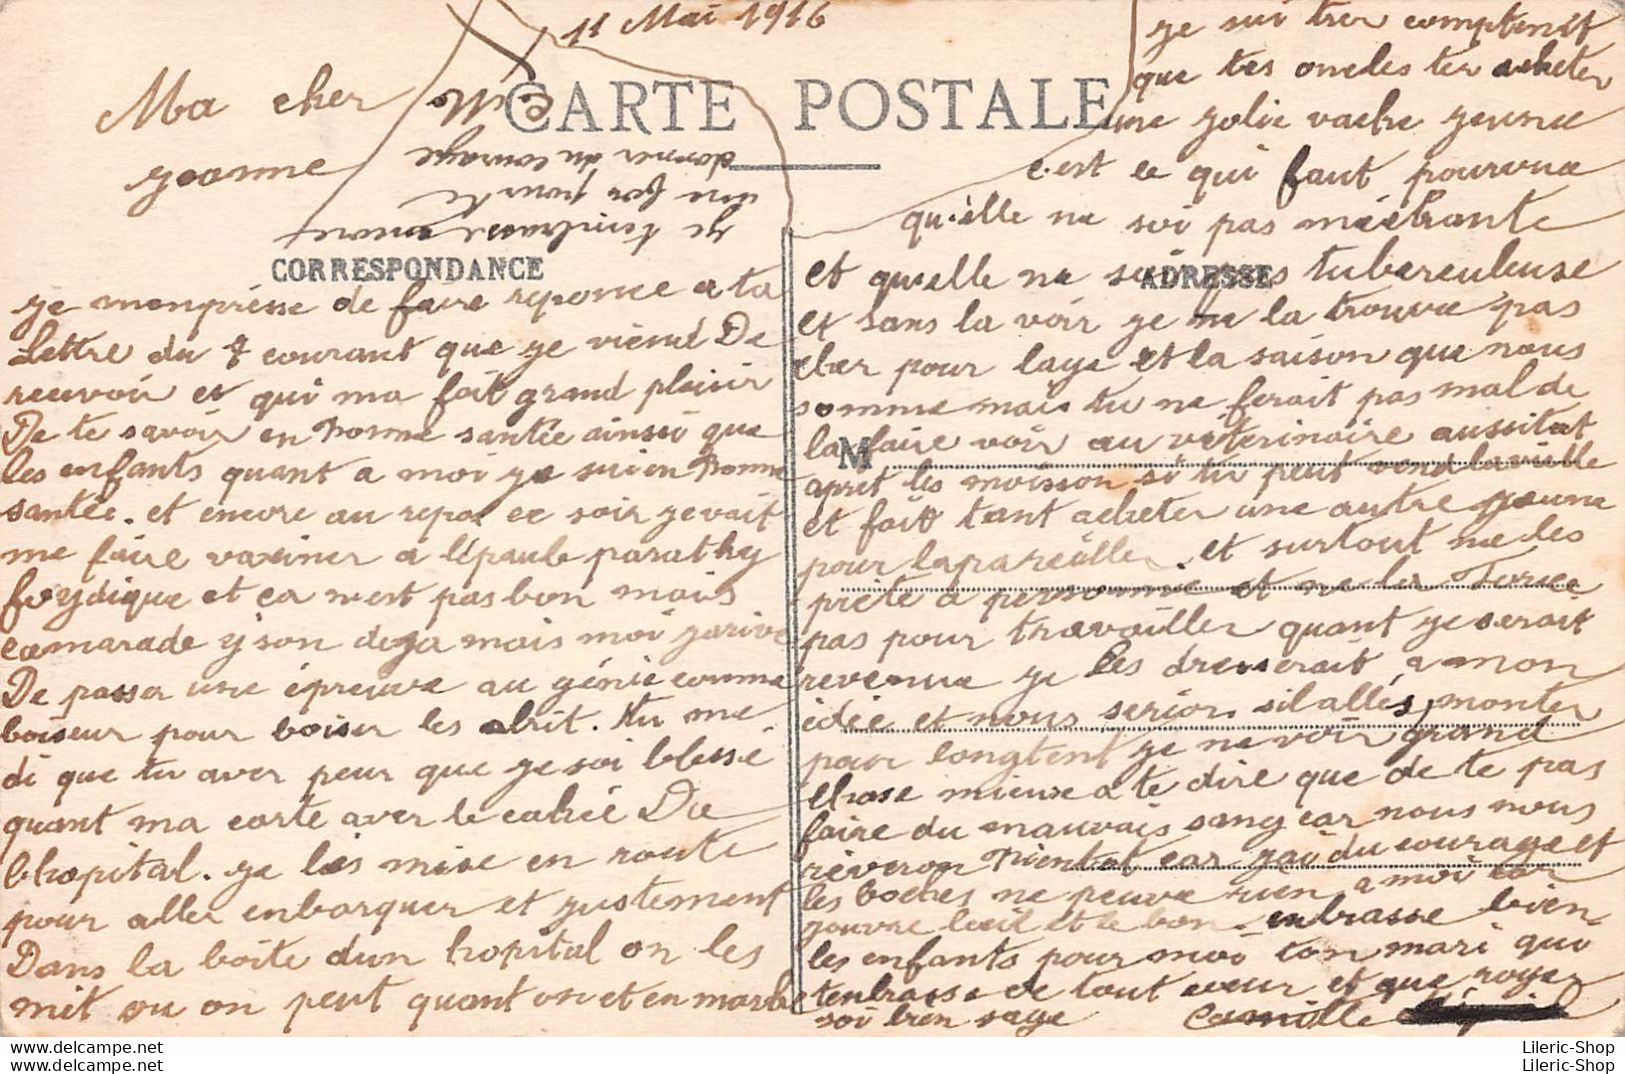 11 Mai 1916
CARTE POSTALE
Ma cher
yoanne
CORRESPONDANCE
ye monprésse de faire reponce a ta
Lettre du 7 courant que ye viend De
recevoir et qui ma fait grand plaisir
De te savoir en bonne santée ainssi que
les enfants quant a moi ye sui en bonne
santée. et encore au repos ce soir ye vait
me faire vaxiner a lépaule parathy
foydique et ca nest pas bon mais
camarade y son deya mais moi yarive
De passer une épreuve au génie comme
boiseur pour boiser les abrit. tu me
di que tu aver peur que ye soi blessé
quant ma carte aver le cachée De
lhopital. ye les mise en route
pour aller enbarquer et yustement
Dans la boîte dun hopital on les
met ou on peut quant on et en marche
ye sui trer comptent
que tes oncles ter acheter
une yolie vache yeune
c'est ce qui faut pourvue
qu'elle ne soi pas méchante
ADRESSE
et quelle ne soi pas tubereuleuse
et sans la voir ye ne la trouve pas
cher pour laye et la saison que nous
somme mais tu ne ferait pas mal de
M
la faire voir au veterinaire aussitot
apret les moisson si tu peut vend la vieille
et fait tant acheter une autre yeune
pour lapareiller. et surtout ne les
prète a personne et ne les force
pas pour travailler quant ye serait
revenue ye les dresserait a mon
idée et nous serion sil allés monter
pour longtent ye ne voir grand
chose mieux a te dire que de te pas
faire du mauvais sang car nous nous
rèveron bientot car yai du courage et
les boches ne peuve rien a moi car
youvre lœil et le bon. enbrasse bien
les enfants pour moi ton mari qui
tenbrasse de tout cœur et que soyer
soi bien sage Camille
ye tenbrasse encore
une foi pour te
donner du courage
Lileric-Shop
Lileric-Shop
Lileric-Shop
Lileric-Shop